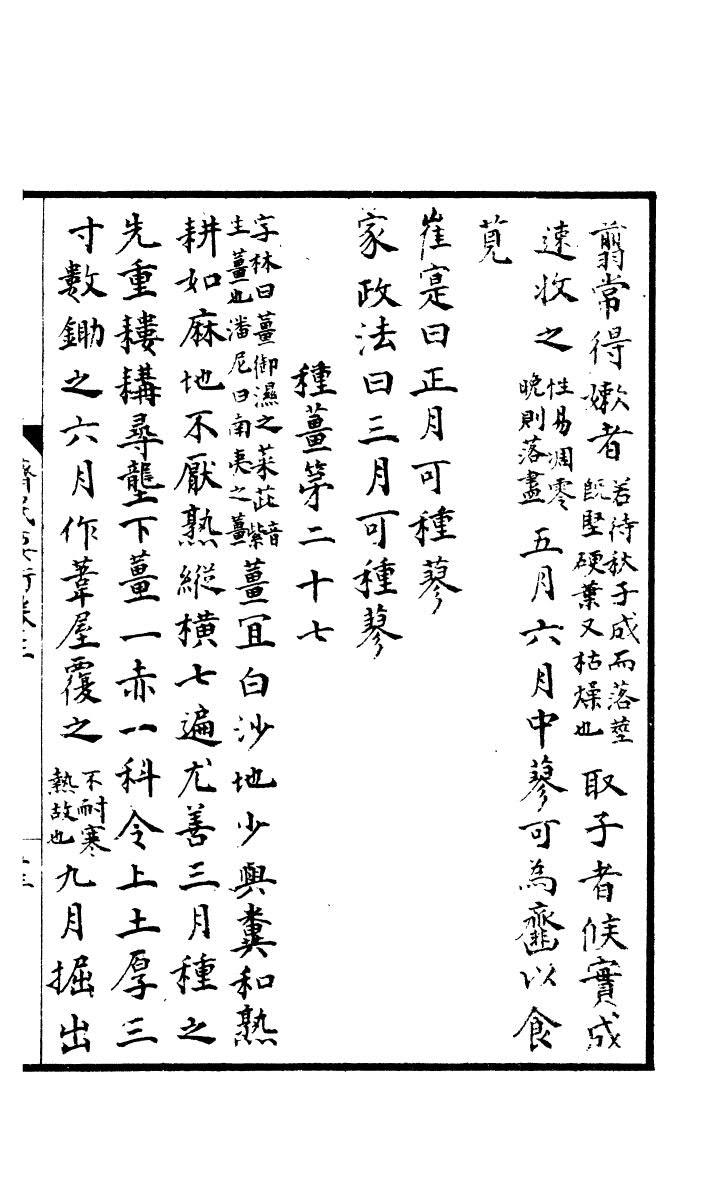 翦常得嫩者若待秋子成而落莖既堅硬葉又枯燥也取子者候實成
速收之性易凋零晚則落盡五月六月中蓼可為虀以食
莧
崔寔曰正月可種蓼
家政法曰三月可種蓼
種薑第二十七
字林曰薑御濕之菜茈音紫生薑也潘尼曰南夷之薑薑宜白沙地少與糞和熟
耕如麻地不厭熟縱橫七遍尤善三月種之
先重耬耩尋壟下薑一赤一科令上土厚三
寸數鋤之六月作葦屋覆之不耐寒熱故也九月掘出
齊民要術卷三